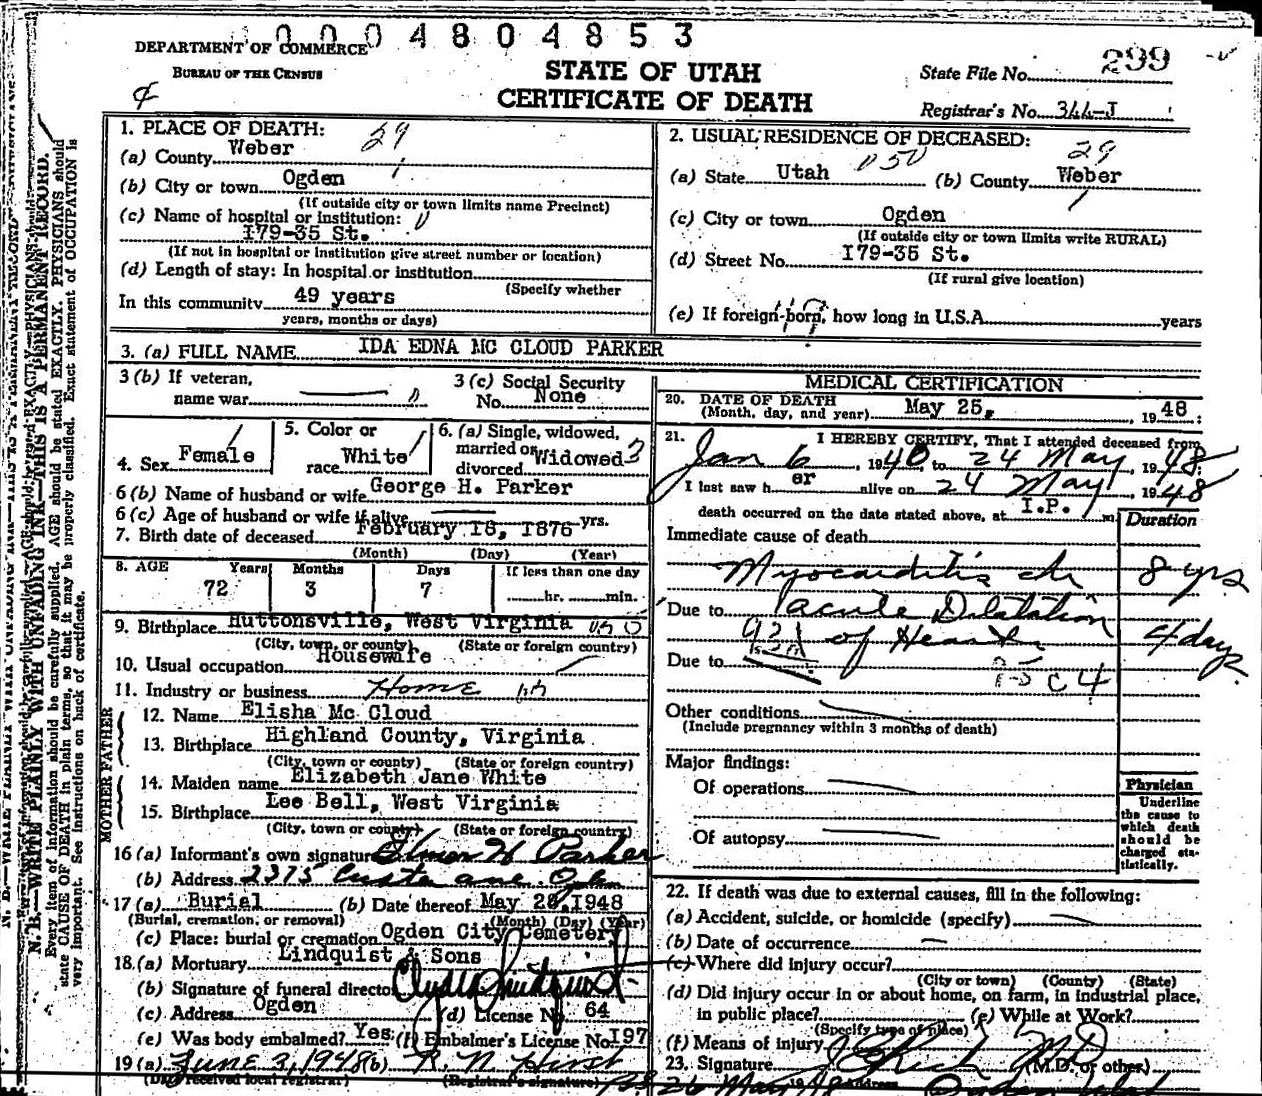 0004804853
DEPARTMENT OF COMMERCE
BUREAU OF THE CENSUS
STATE OF UTAH
CERTIFICATE OF DEATH
State File No. 299
Registrar's No. 344-J
1. PLACE OF DEATH: 29
(a) County Weber
(b) City or town Ogden
(If outside city or town limits name Precinct)
(c) Name of hospital or institution:
I79-35 St.
(If not in hospital or institution give street number or location)
(d) Length of stay: In hospital or institution
(Specify whether
In this community 49 years
years, months or days)
2. USUAL RESIDENCE OF DECEASED: 29
(a) State Utah (b) County Weber
(c) City or town Ogden
(If outside city or town limits write RURAL)
(d) Street No. I79-35 St.
(If rural give location)
(e) If foreign-born, how long in U.S.A. years
3. (a) FULL NAME IDA EDNA MC CLOUD PARKER
3 (b) If veteran,
name war
3 (c) Social Security
No. None
4. Sex Female
5. Color or
race White
6. (a) Single, widowed,
married or
divorced Widowed 3
6 (b) Name of husband or wife George H. Parker
6 (c) Age of husband or wife if alive yrs.
7. Birth date of deceased February 18, 1876
(Month) (Day) (Year)
8. AGE Years Months Days If less than one day
72 3 7 hr. min.
9. Birthplace Huttonsville, West Virginia
(City, town, or county) (State or foreign country)
10. Usual occupation Housewife
11. Industry or business Home
FATHER
12. Name Elisha Mc Cloud
13. Birthplace Highland County, Virginia
(City, town or county) (State or foreign country)
MOTHER
14. Maiden name Elizabeth Jane White
15. Birthplace Lee Bell, West Virginia
(City, town or county) (State or foreign country)
16 (a) Informant's own signature Elmer H Parker
(b) Address 2375 Ogden
17 (a) Burial (b) Date thereof May 28, 1948
(Burial, cremation, or removal) (Month) (Day) (Year)
(c) Place: burial or cremation Ogden City Cemetery
18. (a) Mortuary Lindquist & Sons
(b) Signature of funeral director Clyde Lindquist
(c) Address Ogden (d) License No. 64
(e) Was body embalmed? Yes (f) Embalmer's License No. I97
19 (a) June 3, 1948 (b) R. N. Hirst
(Date received local registrar) (Registrar's signature)
MEDICAL CERTIFICATION
20. DATE OF DEATH
(Month, day, and year) May 25, 1948
21. I HEREBY CERTIFY, That I attended deceased from
Jan 6, 1940 to 24 May, 1948
I last saw her alive on 24 May 1948
death occurred on the date stated above, at I.P. m
Duration
Immediate cause of death
Myocarditis chr 8 yrs
Due to acute Dilatation
of Heart 4 days
Due to
Other conditions
(Include pregnancy within 3 months of death)
Major findings:
Of operations
Of autopsy
Physician
Underline
the cause to
which death
should be
charged sta-
tistically.
22. If death was due to external causes, fill in the following:
(a) Accident, suicide, or homicide (specify)
(b) Date of occurrence
(c) Where did injury occur?
(City or town) (County) (State)
(d) Did injury occur in or about home, on farm, in industrial place,
in public place? (e) While at Work?
(Specify type of place)
(f) Means of injury
23. Signature Rich MD
(M.D. or other)
26 May 1948 Address Ogden Utah
N. B.—WRITE PLAINLY WITH UNFADING INK—THIS IS A PERMANENT RECORD.
Every item of information should be carefully supplied. AGE should be stated EXACTLY. PHYSICIANS should
state CAUSE OF DEATH in plain terms, so that it may be properly classified. Exact statement of OCCUPATION is
very important. See instructions on back of certificate.